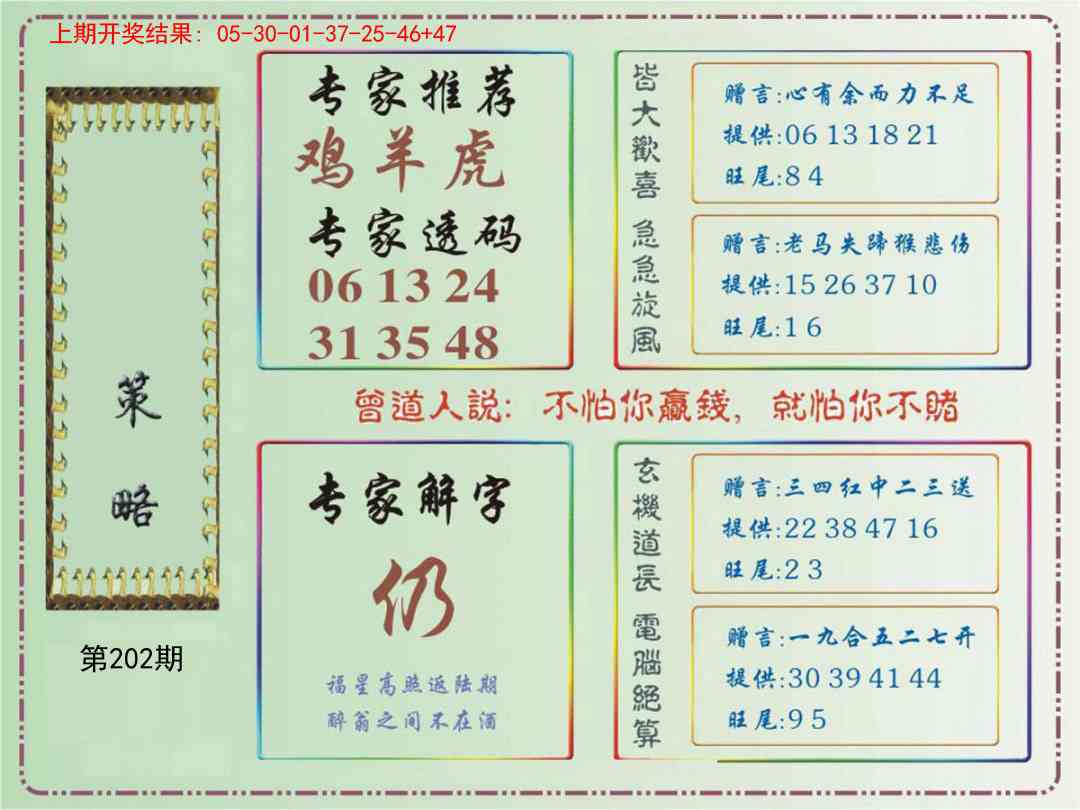 上期开奖结果: 05-30-01-37-25-46+47
策
略
第202期
专家推荐
鸡羊虎
专家透码
06 13 24
31 35 48
皆大歡喜
赠言:心有余而力不足
提供:06 13 18 21
旺尾:8 4
急急旋風
赠言:老马失蹄猴悲伤
提供:15 26 37 10
旺尾:1 6
曾道人説: 不怕你赢錢, 就怕你不賭
专家解字
仍
福星高照返陆期
醉翁之间不在酒
玄機道長
赠言:三四红中二三送
提供:22 38 47 16
旺尾:2 3
電腦絕算
赠言:一九合五二七开
提供:30 39 41 44
旺尾:9 5